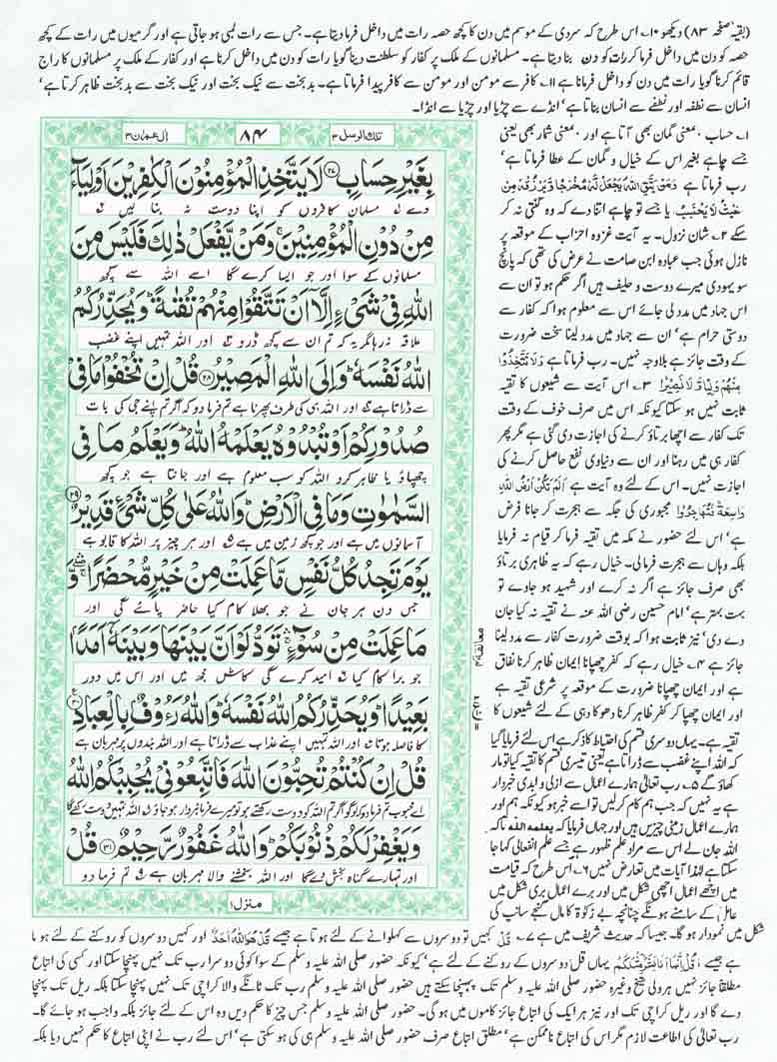 (بقیہ صفحہ ۸۳) دیکھو ۱۰۔ اس طرح کہ سردی کے موسم میں دن کا کچھ حصہ رات میں داخل فرما دیتا ہے۔ جس سے رات لمبی ہو جاتی ہے اور گرمیوں میں رات کے کچھ
حصہ کو دن میں داخل فرما کر رات کو دن بنا دیتا ہے۔ مسلمانوں کے ملک پر کفار کو سلطنت دینا گویا رات کو دن میں داخل کرنا ہے اور کفار کے ملک پر مسلمانوں کا راج
قائم کرنا گویا رات میں دن کو داخل فرمانا ہے ۱۱۔ کافر سے مومن اور مومن سے کافر پیدا فرماتا ہے۔ بد بخت سے نیک بخت اور نیک بخت سے بد بخت ظاہر کرتا ہے‘
انسان سے نطفہ اور نطفے سے انسان بناتا ہے‘ انڈے سے چڑیا اور چڑیا سے انڈا۔
تلك الرسل ۳
۸۴
اٰل عمران ۳
بِغَيْرِ حِسَابٍ ۲۷ لَا يَتَّخِذِ الْمُؤْمِنُوْنَ الْكٰفِرِيْنَ اَوْلِيَآءَ
دے مسلمان کافروں کو اپنا دوست نہ بنا لیں
مِنْ دُوْنِ الْمُؤْمِنِيْنَ ۚ وَمَنْ يَّفْعَلْ ذٰلِكَ فَلَيْسَ مِنَ
مسلمانوں کے سوا اور جو ایسا کرے گا اسے اللہ سے کچھ
اللّٰهِ فِيْ شَيْءٍ اِلَّاۤ اَنْ تَتَّقُوْا مِنْهُمْ تُقٰىةً ؕ وَيُحَذِّرُكُمُ
علاقہ نہ رہا مگر یہ کہ تم ان سے کچھ ڈرو اور اللہ تمہیں اپنے غضب
اللّٰهُ نَفْسَهٗ ؕ وَاِلَى اللّٰهِ الْمَصِيْرُ ۲۸ قُلْ اِنْ تُخْفُوْا مَا فِيْ
سے ڈراتا ہے اور اللہ ہی کی طرف پھرنا ہے تم فرما دو کہ اگر تم اپنے جی کی بات
صُدُوْرِكُمْ اَوْ تُبْدُوْهُ يَعْلَمْهُ اللّٰهُ ؕ وَيَعْلَمُ مَا فِي
چھپاؤ یا ظاہر کرو اللہ کو سب معلوم ہے اور جانتا ہے جو کچھ
السَّمٰوٰتِ وَمَا فِي الْاَرْضِ ؕ وَاللّٰهُ عَلٰى كُلِّ شَيْءٍ قَدِيْرٌ ۲۹
آسمانوں میں ہے اور جو کچھ زمین میں ہے اور ہر چیز پر اللہ کا قابو ہے
يَوْمَ تَجِدُ كُلُّ نَفْسٍ مَّا عَمِلَتْ مِنْ خَيْرٍ مُّحْضَرًا ۚ وَّ
جس دن ہر جان نے جو بھلا کام کیا حاضر پائے گی اور
مَا عَمِلَتْ مِنْ سُوْٓءٍ ۚ تَوَدُّ لَوْ اَنَّ بَيْنَهَا وَبَيْنَهٗۤ اَمَدًۢا
جو برا کام کیا امید کرے گی کاش مجھ میں اور اس میں دور
بَعِيْدًا ؕ وَيُحَذِّرُكُمُ اللّٰهُ نَفْسَهٗ ؕ وَاللّٰهُ رَءُوْفٌۢ بِالْعِبَادِ ۳۰
کا فاصلہ ہوتا اور اللہ تمہیں اپنے عذاب سے ڈراتا ہے اور اللہ بندوں پر مہربان ہے
قُلْ اِنْ كُنْتُمْ تُحِبُّوْنَ اللّٰهَ فَاتَّبِعُوْنِيْ يُحْبِبْكُمُ اللّٰهُ
اے محبوب تم فرما دو کہ لوگو اگر تم اللہ کو دوست رکھتے ہو تو میرے فرمانبردار ہو جاؤ اللہ تمہیں دوست رکھے گا
وَيَغْفِرْ لَكُمْ ذُنُوْبَكُمْ ؕ وَاللّٰهُ غَفُوْرٌ رَّحِيْمٌ ۳۱ قُلْ
اور تمہارے گناہ بخش دے گا اور اللہ بخشنے والا مہربان ہے تم فرما دو
منزل ۱
۱۔ حساب بمعنی گمان بھی آتا ہے اور بمعنی شمار بھی یعنی
جسے چاہے بغیر اس کے خیال و گمان کے عطا فرماتا ہے‘
رب فرماتا ہے وَمَنْ يَّتَّقِ اللّٰهَ يَجْعَلْ لَّهٗ مَخْرَجًا وَّيَرْزُقْهُ مِنْ
حَيْثُ لَا يَحْتَسِبُ یا جسے تو چاہے اتنا دے کہ وہ گنتی نہ کر
سکے ۲۔ شان نزول۔ یہ آیت غزوہ احزاب کے موقعہ پر
نازل ہوئی جب عبادہ ابن صامت نے عرض کی تھی کہ پانچ
سو یہودی میرے دوست و حلیف ہیں اگر حکم ہو تو ان سے
اس جہاد میں مدد لی جائے اس سے معلوم ہوا کہ کفار سے
دوستی حرام ہے‘ ان سے جہاد میں مدد لینا سخت ضرورت
کے وقت جائز ہے بلا وجہ نہیں۔ رب فرماتا ہے وَلَا تَتَّخِذُوْا
مِنْهُمْ وَلِيًّا وَّلَا نَصِيْرًا ۳۔ اس آیت سے شیعوں کا تقیہ
ثابت نہیں ہو سکتا کیونکہ اس میں صرف خوف کے وقت
تک کفار سے اچھا برتاؤ کرنے کی اجازت دی گئی ہے مگر پھر
کفار ہی میں رہنا اور ان سے دنیاوی نفع حاصل کرنے کی
اجازت نہیں۔ اس کے لئے وہ آیت ہے اَلَمْ تَكُنْ اَرْضُ اللّٰهِ
وَاسِعَةً فَتُهَاجِرُوْا مجبوری کی جگہ سے ہجرت کر جانا فرض
ہے‘ اس لئے حضور نے مکہ میں تقیہ فرما کر قیام نہ فرمایا
بلکہ وہاں سے ہجرت فرمائی۔ خیال رہے کہ یہ ظاہری برتاؤ
بھی صرف جائز ہے اگر نہ کرے اور شہید ہو جاوے تو
بہت بہتر ہے‘ امام حسین رضی اللہ عنہ نے تقیہ نہ کیا جان
دے دی‘ نیز ثابت ہوا کہ بوقت ضرورت کفار سے مدد لینا
جائز ہے ۴۔ خیال رہے کہ کفر چھپانا ایمان ظاہر کرنا نفاق
ہے اور ایمان چھپانا ضرورت کے موقعہ پر شرعی تقیہ ہے
اور ایمان چھپا کر کفر ظاہر کرنا دھوکا دہی کے لئے شیعوں کا
تقیہ ہے۔ یہاں دوسری قسم کی احتیاط کا ذکر ہے اس لئے فرمایا گیا
کہ اللہ اپنے غضب سے ڈراتا ہے یعنی تیسری قسم کا تقیہ کیا تو مار
کھاؤ گے ۵۔ رب تعالیٰ ہمارے اعمال سے ازلی و ابدی خبردار
ہے یہ نہیں کہ جب ہم کام کرلیں تو اسے خبر ہو کیونکہ ہم اور
ہمارے اعمال زمینی چیزیں ہیں اور جہاں فرمایا کہ يعلمه الله تاکہ
اللہ جان لے اس سے مراد علم ظہور ہے جسے علم انفعالی کہا جا
سکتا ہے لہٰذا آیات میں تعارض نہیں ۶۔ اس طرح کہ قیامت
میں اچھے اعمال اچھی شکل میں اور برے اعمال بری شکل میں
عامل کے سامنے ہونگے چنانچہ بے زکوٰۃ کا مال گنجے سانپ کی
شکل میں نمودار ہو گا۔ جیسا کہ حدیث شریف میں ہے ۷۔ قُلْ کہیں تو دوسروں سے کہلوانے کے لئے ہوتا ہے جیسے قُلْ هُوَ اللّٰهُ اَحَدٌ اور کہیں دوسروں کو روکنے کے لئے ہوتا
ہے جیسے قُلْ اِنَّمَاۤ اَنَا بَشَرٌ مِّثْلُكُمْ یہاں قل دوسروں کے روکنے کے لئے ہے‘ کیونکہ حضور صلی اللہ علیہ وسلم کے سوا کوئی دوسرا رب تک نہیں پہنچا سکتا اور کسی کی اتباع
مطلقاً جائز نہیں ہر ولی شیخ وغیرہ حضور صلی اللہ علیہ وسلم تک پہنچا سکتے ہیں حضور صلی اللہ علیہ وسلم رب تک تانگے والا کراچی تک نہیں پہنچا سکتا بلکہ ریل تک پہنچا
دے گا اور ریل کراچی تک اور نیز ہر ایک کی اتباع جائز کاموں میں ہو گی۔ حضور صلی اللہ علیہ وسلم جس چیز کا حکم دیں وہ اس کے لئے جائز بلکہ واجب ہو جائے گا۔
رب تعالیٰ کی اطاعت لازم مگر اس کی اتباع ناممکن ہے‘ مطلق اتباع صرف حضور صلی اللہ علیہ وسلم ہی کی ہو سکتی ہے‘ اس لئے رب نے اپنی اتباع کا حکم نہیں دیا بلکہ